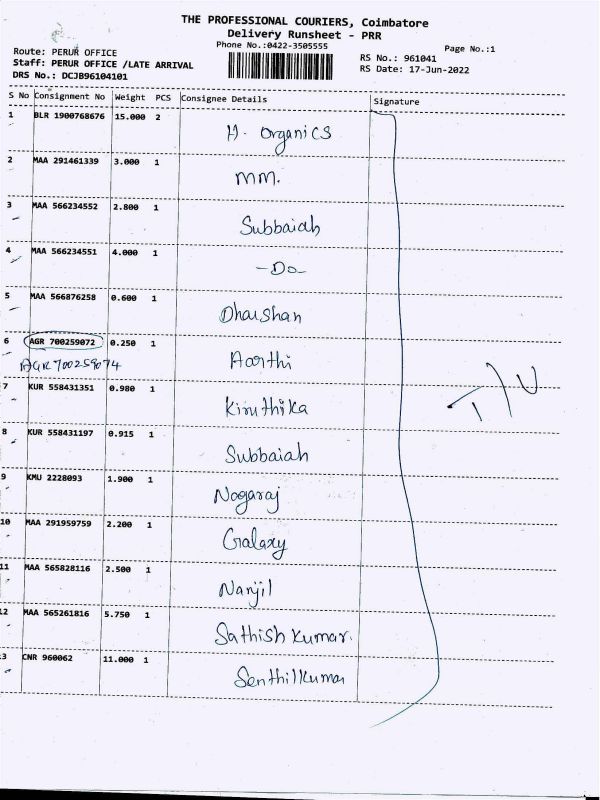 THE PROFESSIONAL COURIERS, Coimbatore
Delivery Runsheet - PRR
Phone No.:0422-3505555
Page No.:1
Route: PERUR OFFICE
RS No.: 961041
Staff: PERUR OFFICE /LATE ARRIVAL
RS Date: 17-Jun-2022
DRS No.: DCJB96104101
S No Consignment No Weight PCS Consignee Details Signature
1 BLR 1900768676 15.000 2
H. Organics
2 MAA 291461339 3.000 1
MM.
3 MAA 566234552 2.800 1
Subbaiah
4 MAA 566234551 4.000 1
-Do-
5 MAA 566876258 0.600 1
Dharshan
6 AGR 700259072 0.250 1
AGR 700259074 Aarthi
7 KUR 558431351 0.980 1
Kiruthika
8 KUR 558431197 0.915 1
Subbaiah
9 KMU 2228093 1.900 1
Nogaraj
10 MAA 291959759 2.200 1
Galaxy
11 MAA 565828116 2.500 1
Nanjil
12 MAA 565261816 5.750 1
Sathish Kumar.
3 CNR 960062 11.000 1
Senthilkumar